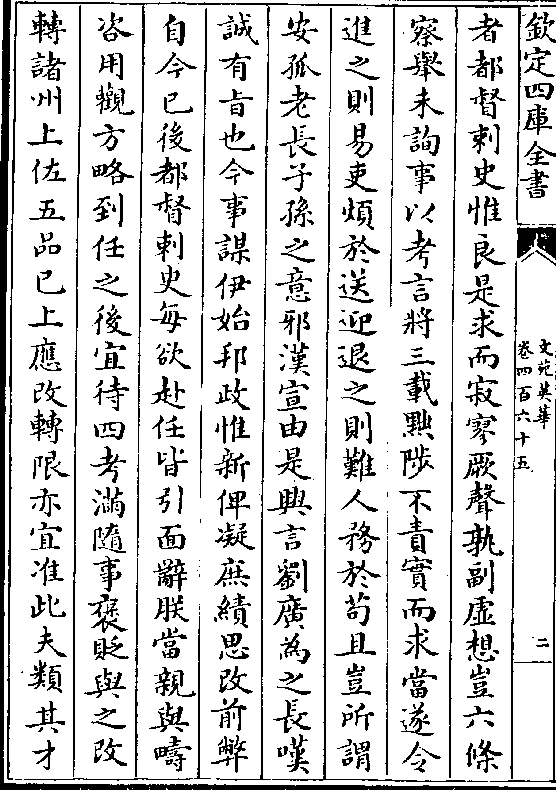 欽定四庫全書
文苑英華
卷四百六十五
二
者都督刺史惟良是求而寂寥厥聲孰副虛想豈六條
察舉未詢事以考言將三載黜陟不責實而求當遂令
進之則易吏煩於送迎退之則難人務於苟且豈所謂
安孤老長子孫之意邪漢宣由是興言劉廣為之長嘆
誠有㫖也今事謀伊始邦政惟新俾凝庶績思改前弊
自今已後都督刺史每欲赴任皆引面辭朕當親與疇
咨用觀方略到任之後宜待四考滿隨事褒貶與之改
轉諸州上佐五品已上應改轉限亦宜准此夫類其才